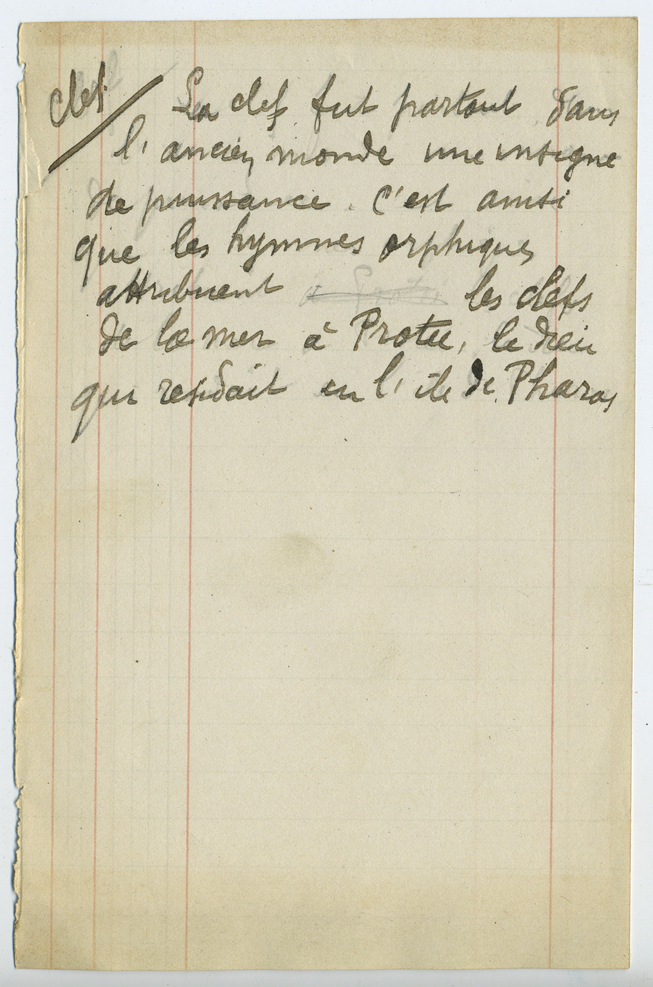 clef
La clef fut partout dans
l'ancien monde une insigne
de puissance. C'est ainsi
que les hymnes orphiques
attribuent les clefs
de la mer à Protée, le dieu
qui residait en l'île de Pharos